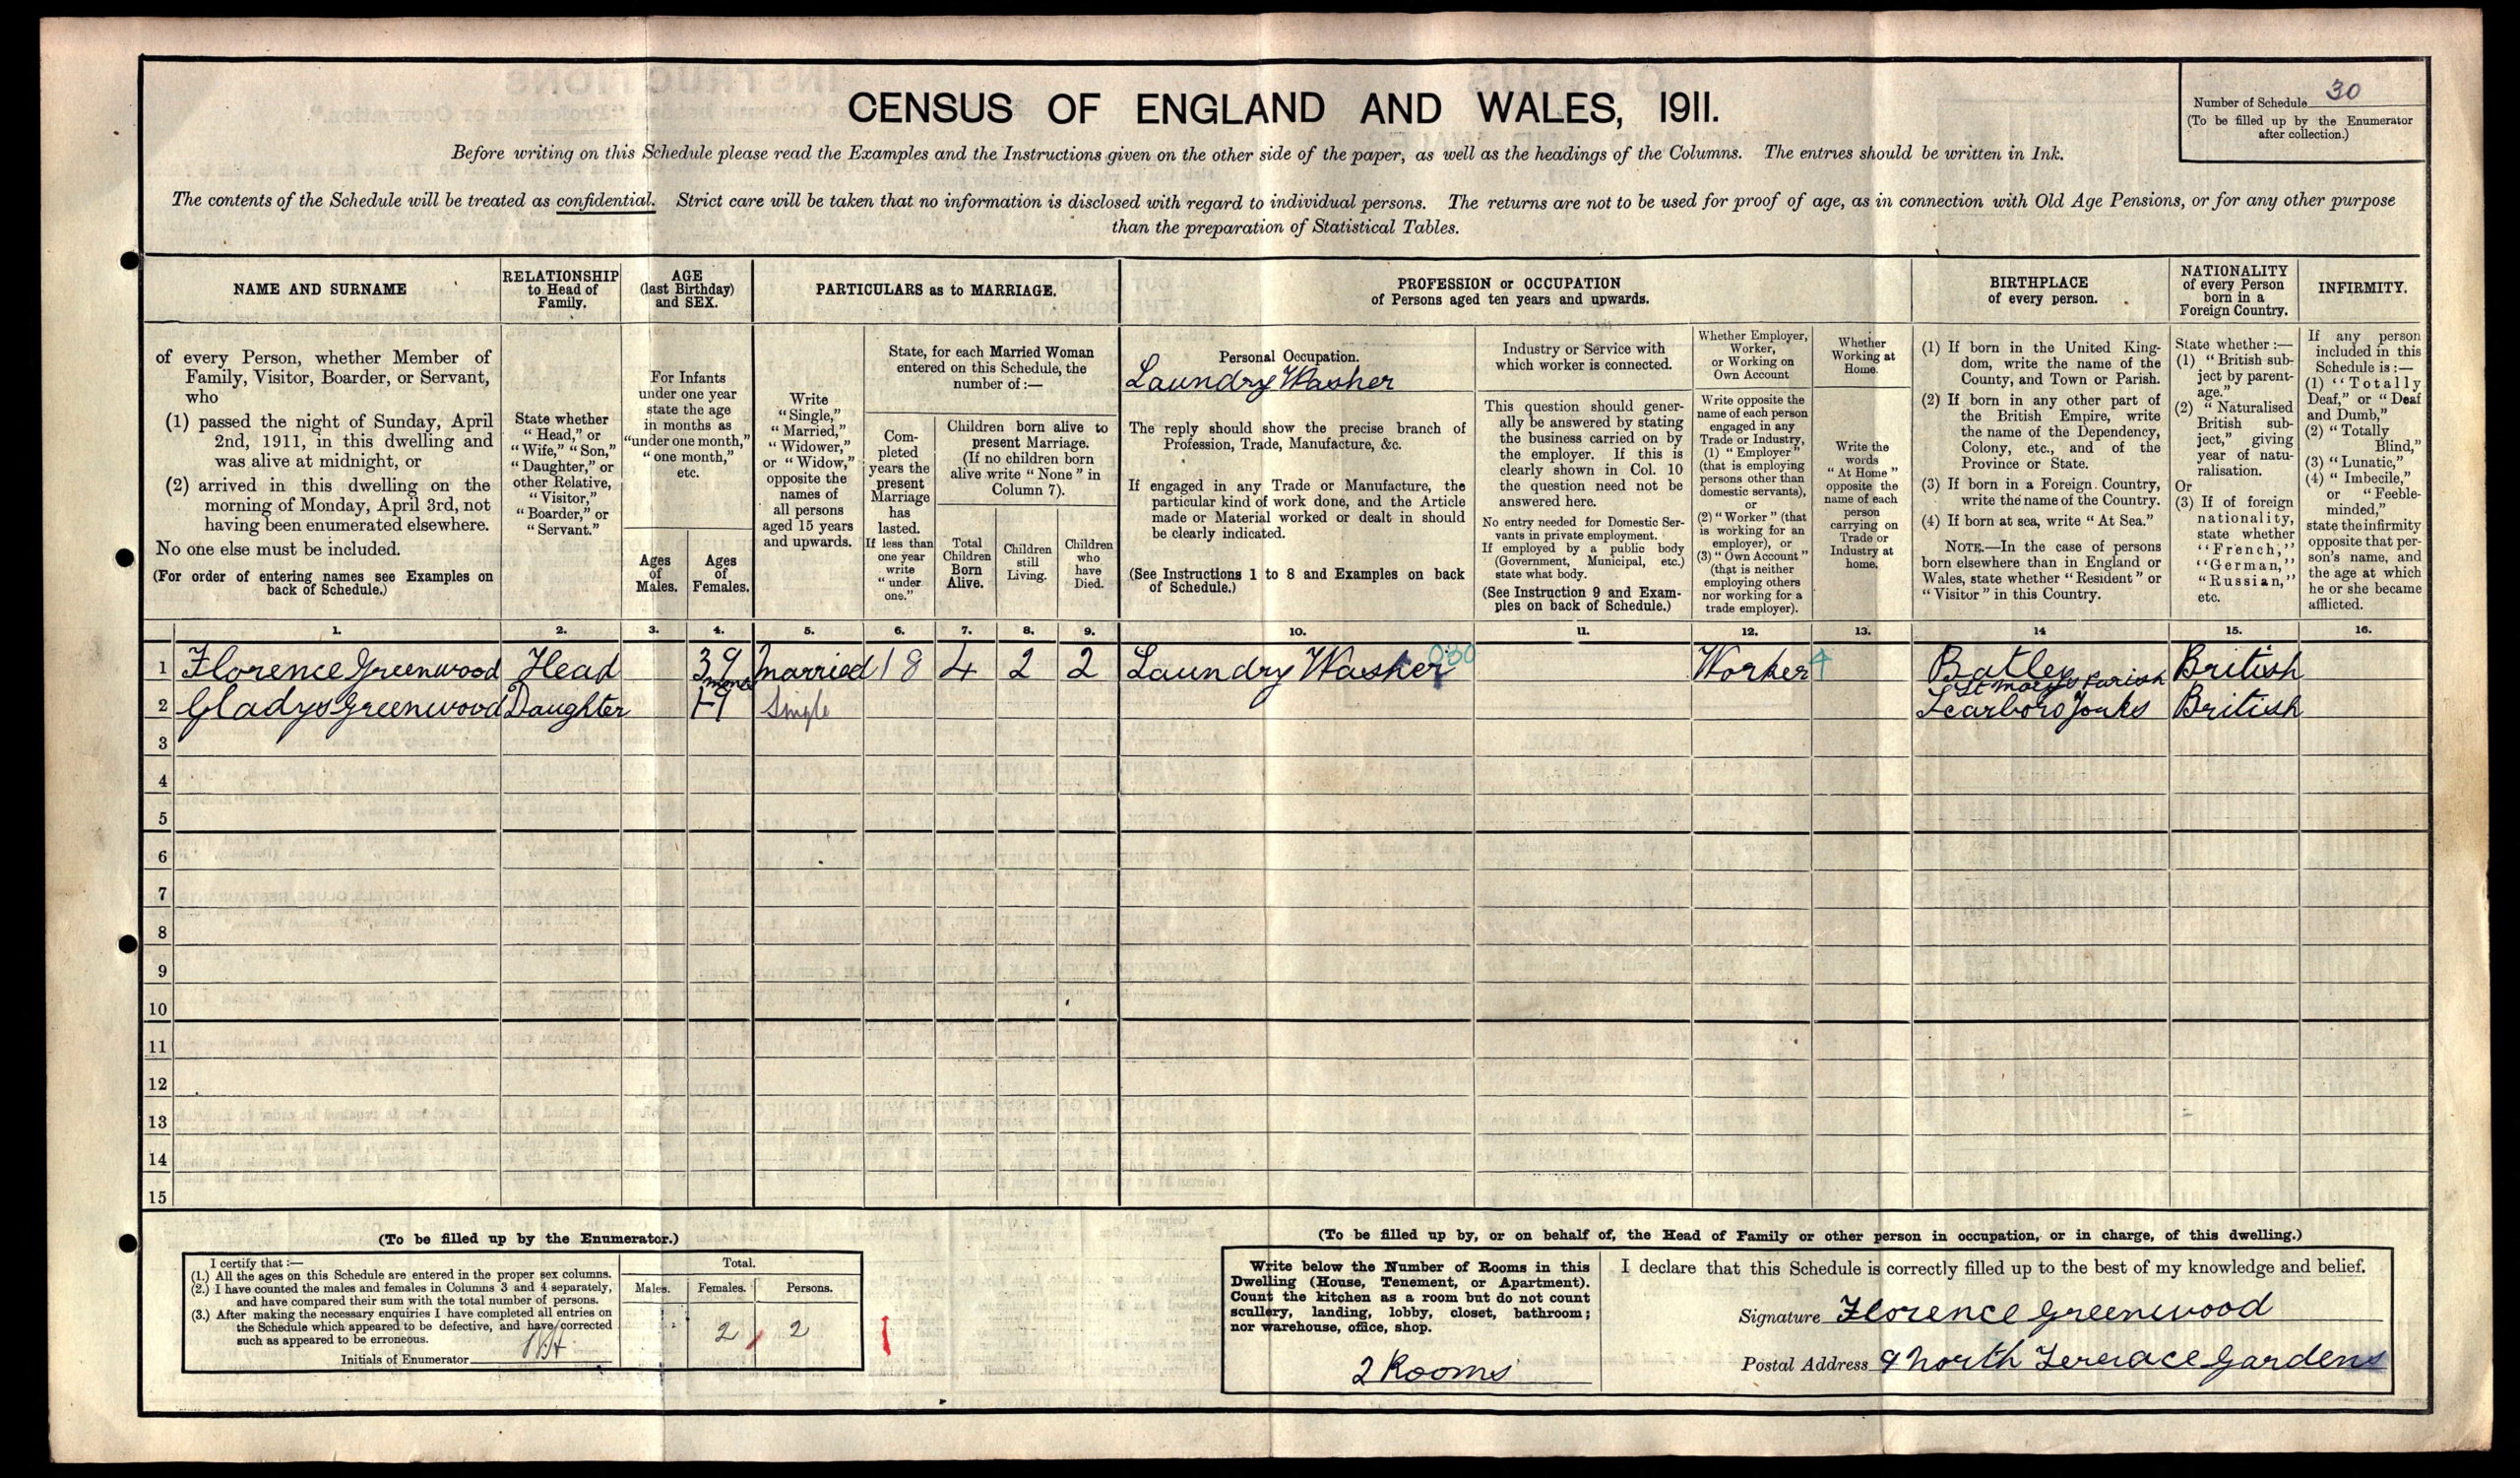 CENSUS OF ENGLAND AND WALES, 1911.
Number of Schedule 30
(To be filled up by the Enumerator
after collection.)
Before writing on this Schedule please read the Examples and the Instructions given on the other side of the paper, as well as the headings of the Columns. The entries should be written in Ink.
The contents of the Schedule will be treated as confidential. Strict care will be taken that no information is disclosed with regard to individual persons. The returns are not to be used for proof of age, as in connection with Old Age Pensions, or for any other purpose
than the preparation of Statistical Tables.
NAME AND SURNAME
of every Person, whether Member of
Family, Visitor, Boarder, or Servant,
who
(1) passed the night of Sunday, April
2nd, 1911, in this dwelling and
was alive at midnight, or
(2) arrived in this dwelling on the
morning of Monday, April 3rd, not
having been enumerated elsewhere.
No one else must be included.
(For order of entering names see Examples on
back of Schedule.)
RELATIONSHIP
to Head of
Family.
State whether
"Head," or
"Wife," "Son,"
"Daughter," or
other Relative,
"Visitor,"
"Boarder," or
"Servant."
AGE
(last Birthday)
and SEX.
For Infants
under one year
state the age
in months as
"under one month,"
"one month,"
etc.
Ages
of
Males.
Ages
of
Females.
PARTICULARS as to MARRIAGE.
Write
"Single,"
"Married,"
"Widower,"
or "Widow,"
opposite the
names of
all persons
aged 15 years
and upwards.
State, for each Married Woman
entered on this Schedule, the
number of :—
Com-
pleted
years the
present
Marriage
has
lasted.
If less than
one year
write
"under
one."
Children born alive to
present Marriage.
(If no children born
alive write "None" in
Column 7).
Total
Children
Born
Alive.
Children
still
Living.
Children
who
have
Died.
PROFESSION or OCCUPATION
of Persons aged ten years and upwards.
Personal Occupation.
Laundry Washer
The reply should show the precise branch of
Profession, Trade, Manufacture, &c.
If engaged in any Trade or Manufacture, the
particular kind of work done, and the Article
made or Material worked or dealt in should
be clearly indicated.
(See Instructions 1 to 8 and Examples on back
of Schedule.)
Industry or Service with
which worker is connected.
This question should gener-
ally be answered by stating
the business carried on by
the employer. If this is
clearly shown in Col. 10
the question need not be
answered here.
No entry needed for Domestic Ser-
vants in private employment.
If employed by a public body
(Government, Municipal, etc.)
state what body.
(See Instruction 9 and Exam-
ples on back of Schedule.)
Whether Employer,
Worker,
or Working on
Own Account
Write opposite the
name of each person
engaged in any
Trade or Industry,
(1) "Employer"
(that is employing
persons other than
domestic servants),
or
(2) "Worker" (that
is working for an
employer), or
(3) "Own Account"
(that is neither
employing others
nor working for a
trade employer).
Whether
Working at
Home.
Write the
words
"At Home"
opposite the
name of each
person
carrying on
Trade or
Industry at
home.
BIRTHPLACE
of every person.
(1) If born in the United King-
dom, write the name of the
County, and Town or Parish.
(2) If born in any other part of
the British Empire, write
the name of the Dependency,
Colony, etc., and of the
Province or State.
(3) If born in a Foreign Country,
write the name of the Country.
(4) If born at sea, write "At Sea."
NOTE.—In the case of persons
born elsewhere than in England or
Wales, state whether "Resident" or
"Visitor" in this Country.
NATIONALITY
of every Person
born in a
Foreign Country.
State whether :—
(1) "British sub-
ject by parent-
age."
(2) "Naturalised
British sub-
ject," giving
year of natu-
ralisation.
Or
(3) If of foreign
nationality,
state whether
"French,"
"German,"
"Russian,"
etc.
INFIRMITY.
If any person
included in this
Schedule is :—
(1) "Totally
Deaf," or "Deaf
and Dumb,"
(2) "Totally
Blind,"
(3) "Lunatic,"
(4) "Imbecile,"
or "Feeble-
minded,"
state the infirmity
opposite that per-
son's name, and
the age at which
he or she became
afflicted.
1. 2. 3. 4. 5. 6. 7. 8. 9. 10. 11. 12. 13. 14 15. 16.
1 Florence Greenwood Head 39 Married 18 4 2 2 Laundry Washer 030 Worker 4 Batley British
St Marys Parish
2 Gladys Greenwood Daughter Single Scarboro Yorks British
3
4
5
6
7
8
9
10
11
12
13
14
15
(To be filled up by the Enumerator.)
I certify that :—
(1.) All the ages on this Schedule are entered in the proper sex columns.
(2.) I have counted the males and females in Columns 3 and 4 separately,
and have compared their sum with the total number of persons.
(3.) After making the necessary enquiries I have completed all entries on
the Schedule which appeared to be defective, and have corrected
such as appeared to be erroneous.
Initials of Enumerator
Total.
Males. Females. Persons.
2 2
(To be filled up by, or on behalf of, the Head of Family or other person in occupation, or in charge, of this dwelling.)
Write below the Number of Rooms in this
Dwelling (House, Tenement, or Apartment).
Count the kitchen as a room but do not count
scullery, landing, lobby, closet, bathroom;
nor warehouse, office, shop.
2 Rooms
I declare that this Schedule is correctly filled up to the best of my knowledge and belief.
Signature Florence Greenwood
Postal Address 9 North Terrace Gardens